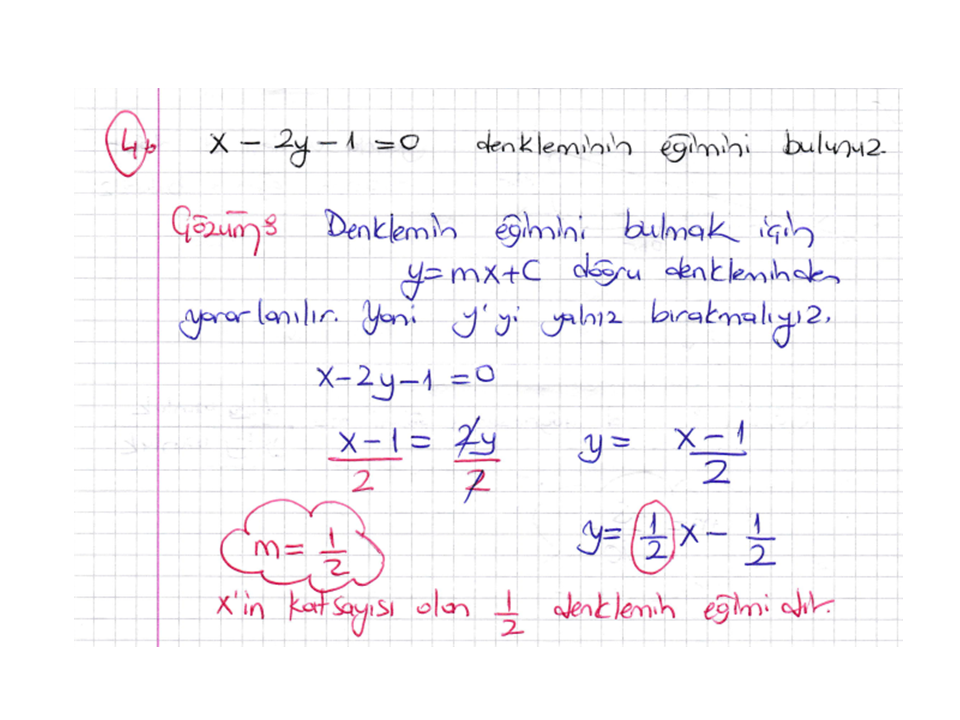 4) x - 2y - 1 = 0 denkleminin eğimini bulunuz.
Çözüm: Denklemin eğimini bulmak için
y = mx + C doğru denkleminden
yararlanılır. Yani y'yi yalnız bırakmalıyız.
x - 2y - 1 = 0
x - 1 / 2 = 2y / 2 y = x - 1 / 2
m = 1/2 y = 1/2 x - 1/2
x'in katsayısı olan 1/2 denklemin eğimidir.